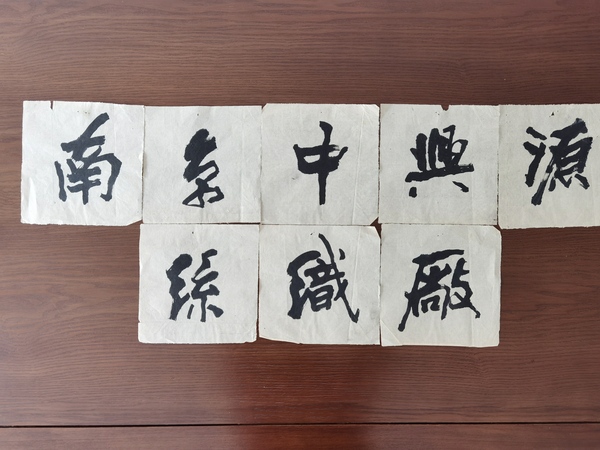 南京中興源
絲織廠